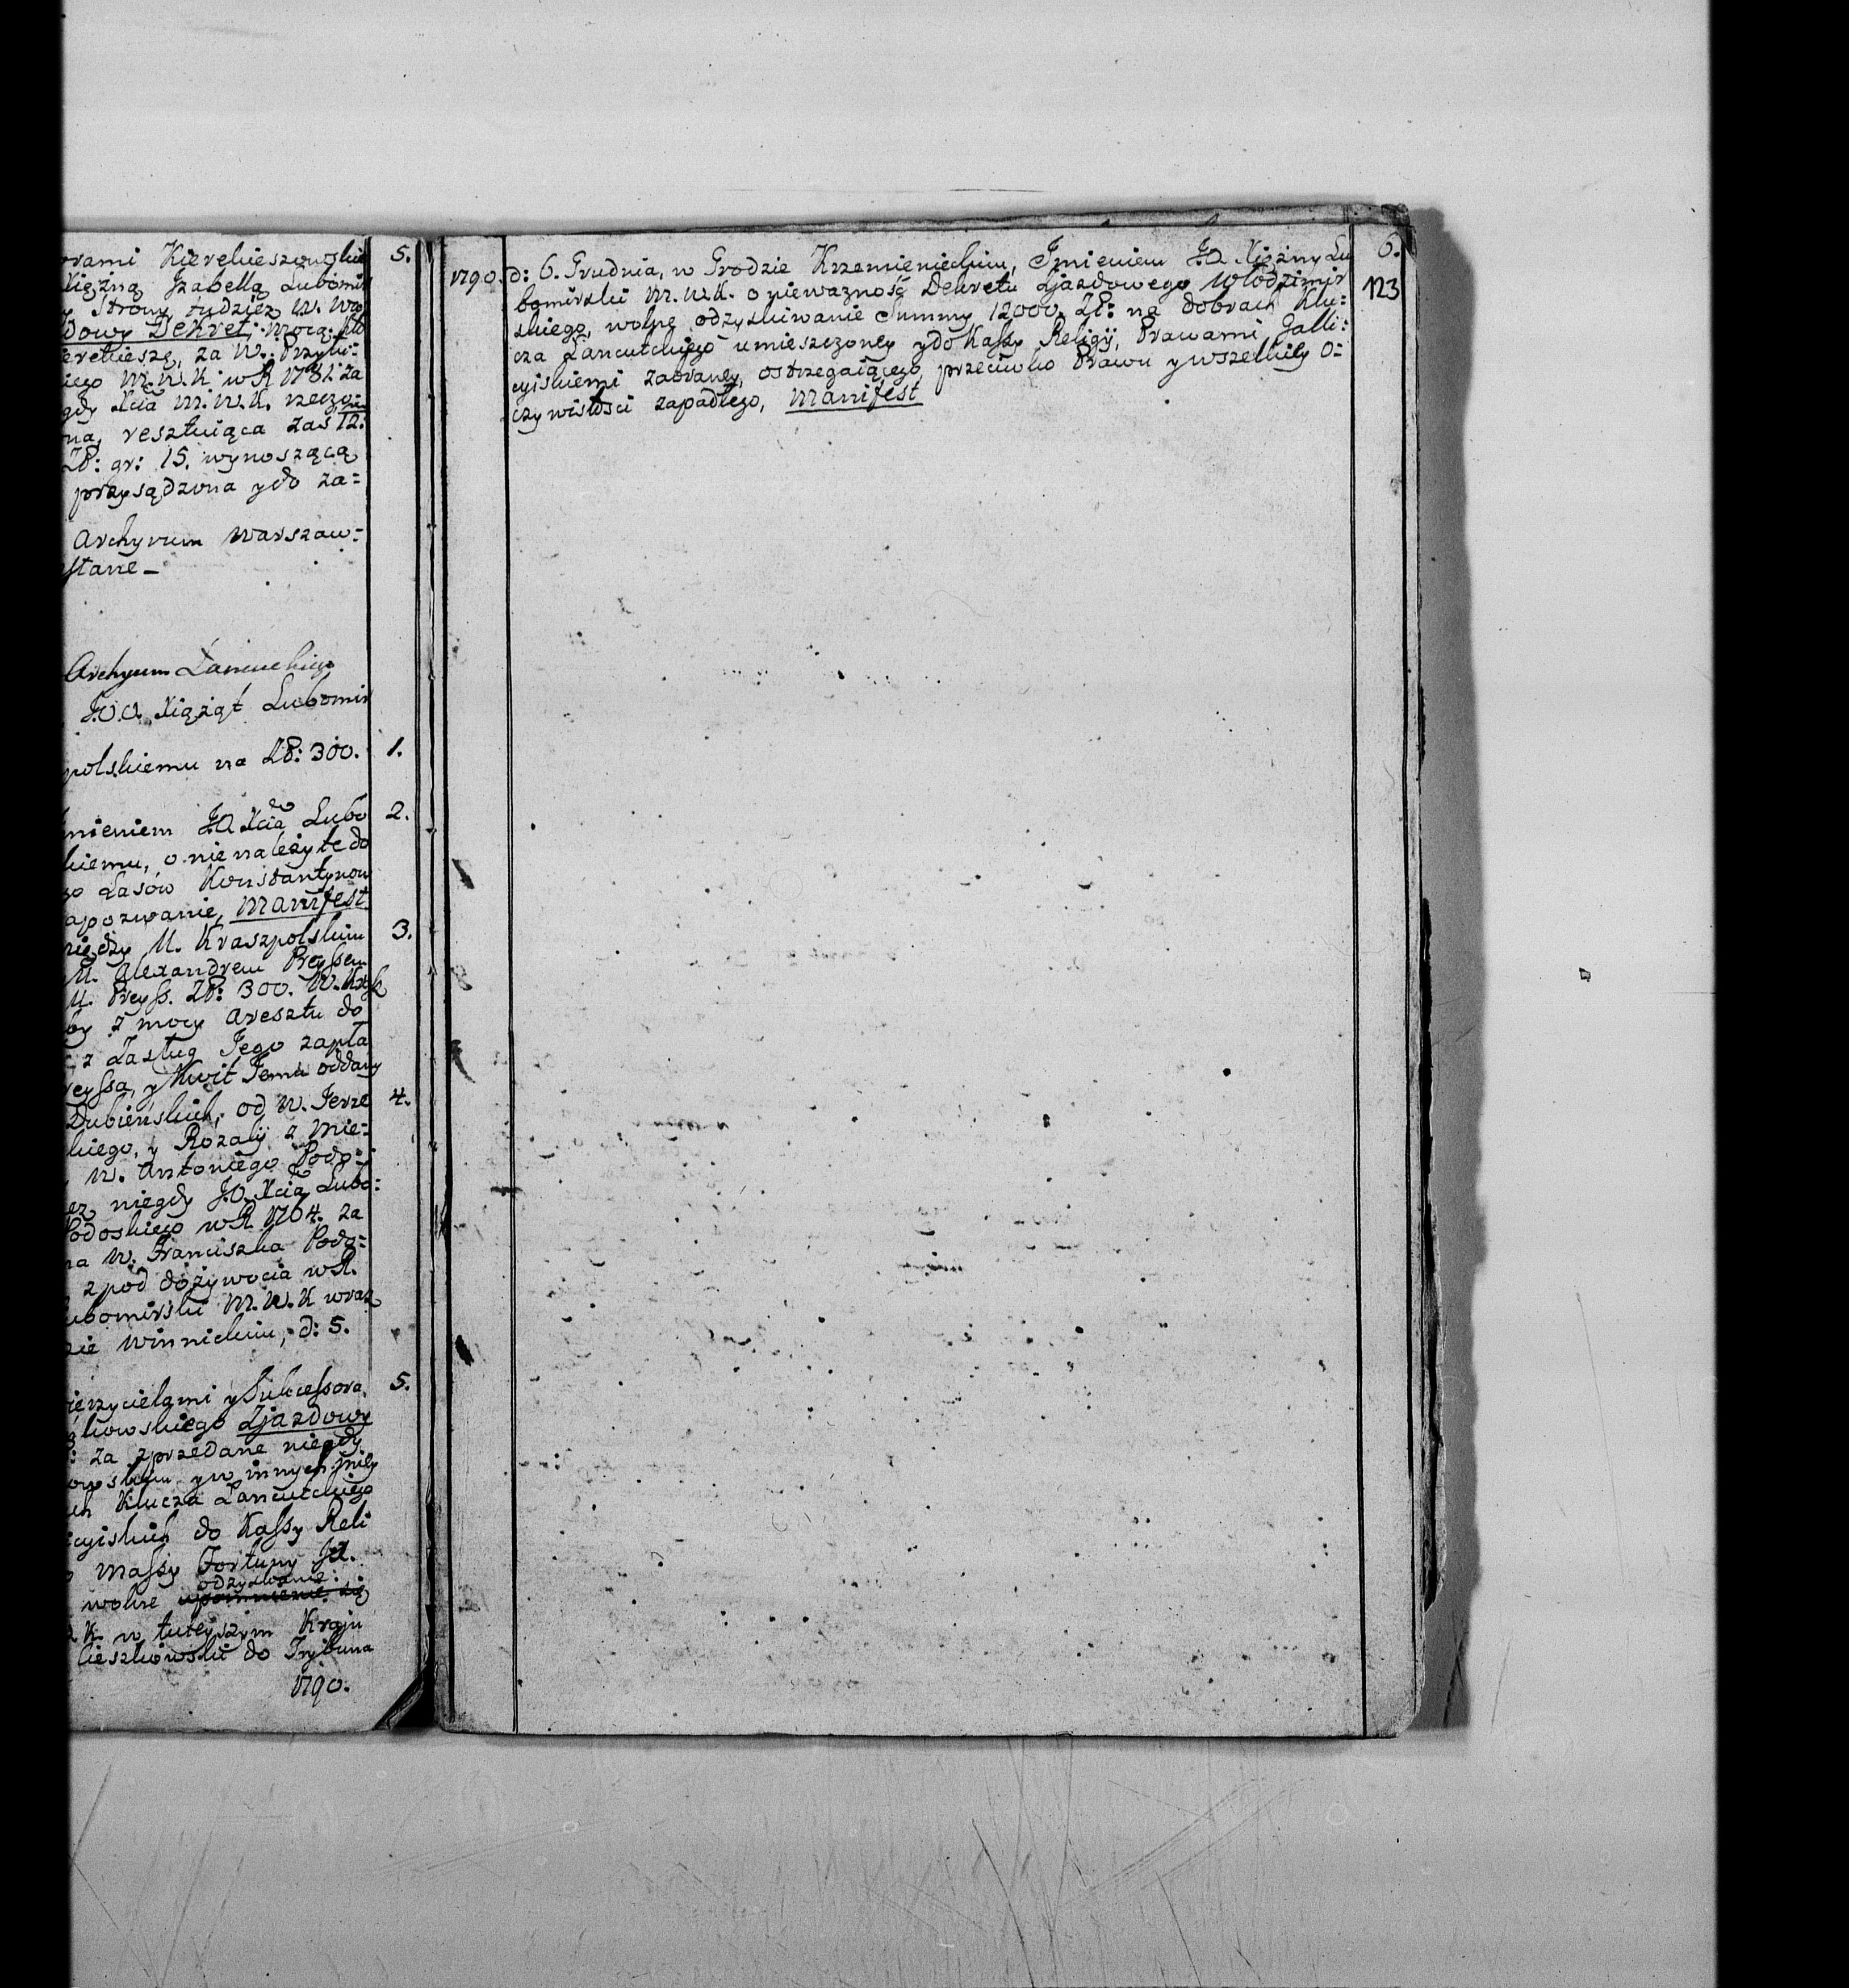 rami Kierekieszowskie 5.
Xiężną Izabellą Lubomir
Strony tudzież W. Wo
dowy Dekret. mocą
erekieszę, za W. Przyłu:
iego M.W.K. w R. 1781. za
gdy Xcia M.W.K. rzeczo:
na, resztuiąca zaś 12.
Zł: gr: 15. wynoszącą
przysądzona y do za=
Archyvum Warszaw:
stane_
Archyum Łancuckiego
J.O.O. Xiążąt Lubomir
polskiemu na Zł: 300. 1.
mieniem J.O. Xcia Lubo 2.
kiemu, o nie należyte do
go Lasów Konstantynow
apozwanie, Manifest.
między U. Kraszpolskim 3.
U. Alexandrem Preyssem
U. Preyss. Zł: 300. W.
by z mocy Aresztu do
z Zasług Jego zapła
reyssa, y Kwit Jemu oddany
Dubieńskich; od W. Jerze 4.
kiego, y Rozalÿ z Mie=
W. Antoniego Podo=
ez niegdy J.O. Xcia Lubo=
Podoskiego w R. 1764. za
na W. Franciszka Podo=
z pod dożywocia w R.
ubomirski M.W.K wraz
zie Winnickim, d: 5.
ierzycielami y Sukcessora. 5.
kowskiego Zjazdowy
: za zprzedane niegdy
owskim y w innych
ch Klucza Łancutckiego
icyiskich do Kassy Reli
Massy Fortuny Jd.
odzyskanie:
wolne upomnienie się
K. w tuteyszym Kraju
kieszkowskie do Trybuna
1790.
1790. d: 6. Grudnia, w Grodzie Krzemienieckim, Imieniem J.O. Xiężny Lu 6.
bomirski M.W.K. o nieważność Dekretu Zjazdowego Włodzimir 123
skiego, wolne odzyskiwanie Summy 12000. Zł: na dobrach Klu:
cza Łancutckiego umieszczoney y do Kassy Religÿ, Prawami Galli:
cyiskiemi zabraney, ostrzegaiącego, przeciwko Prawu y wszelkiey O=
czywistości zapadłego, Manifest